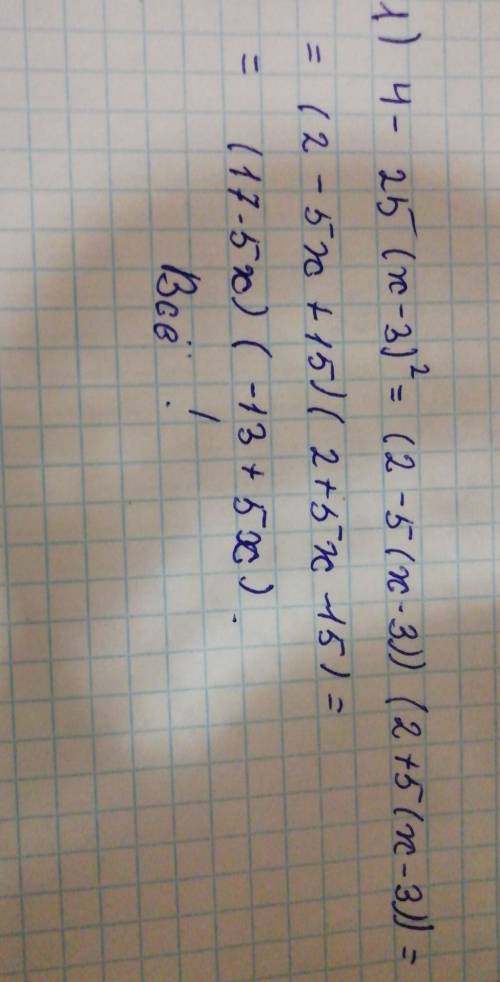 1) 4 - 25(x-3)² = (2-5(x-3)) (2+5(x-3)) =
= (2 - 5x + 15) (2+5x-15) =
= (17-5x) (-13 + 5x).
Всё !